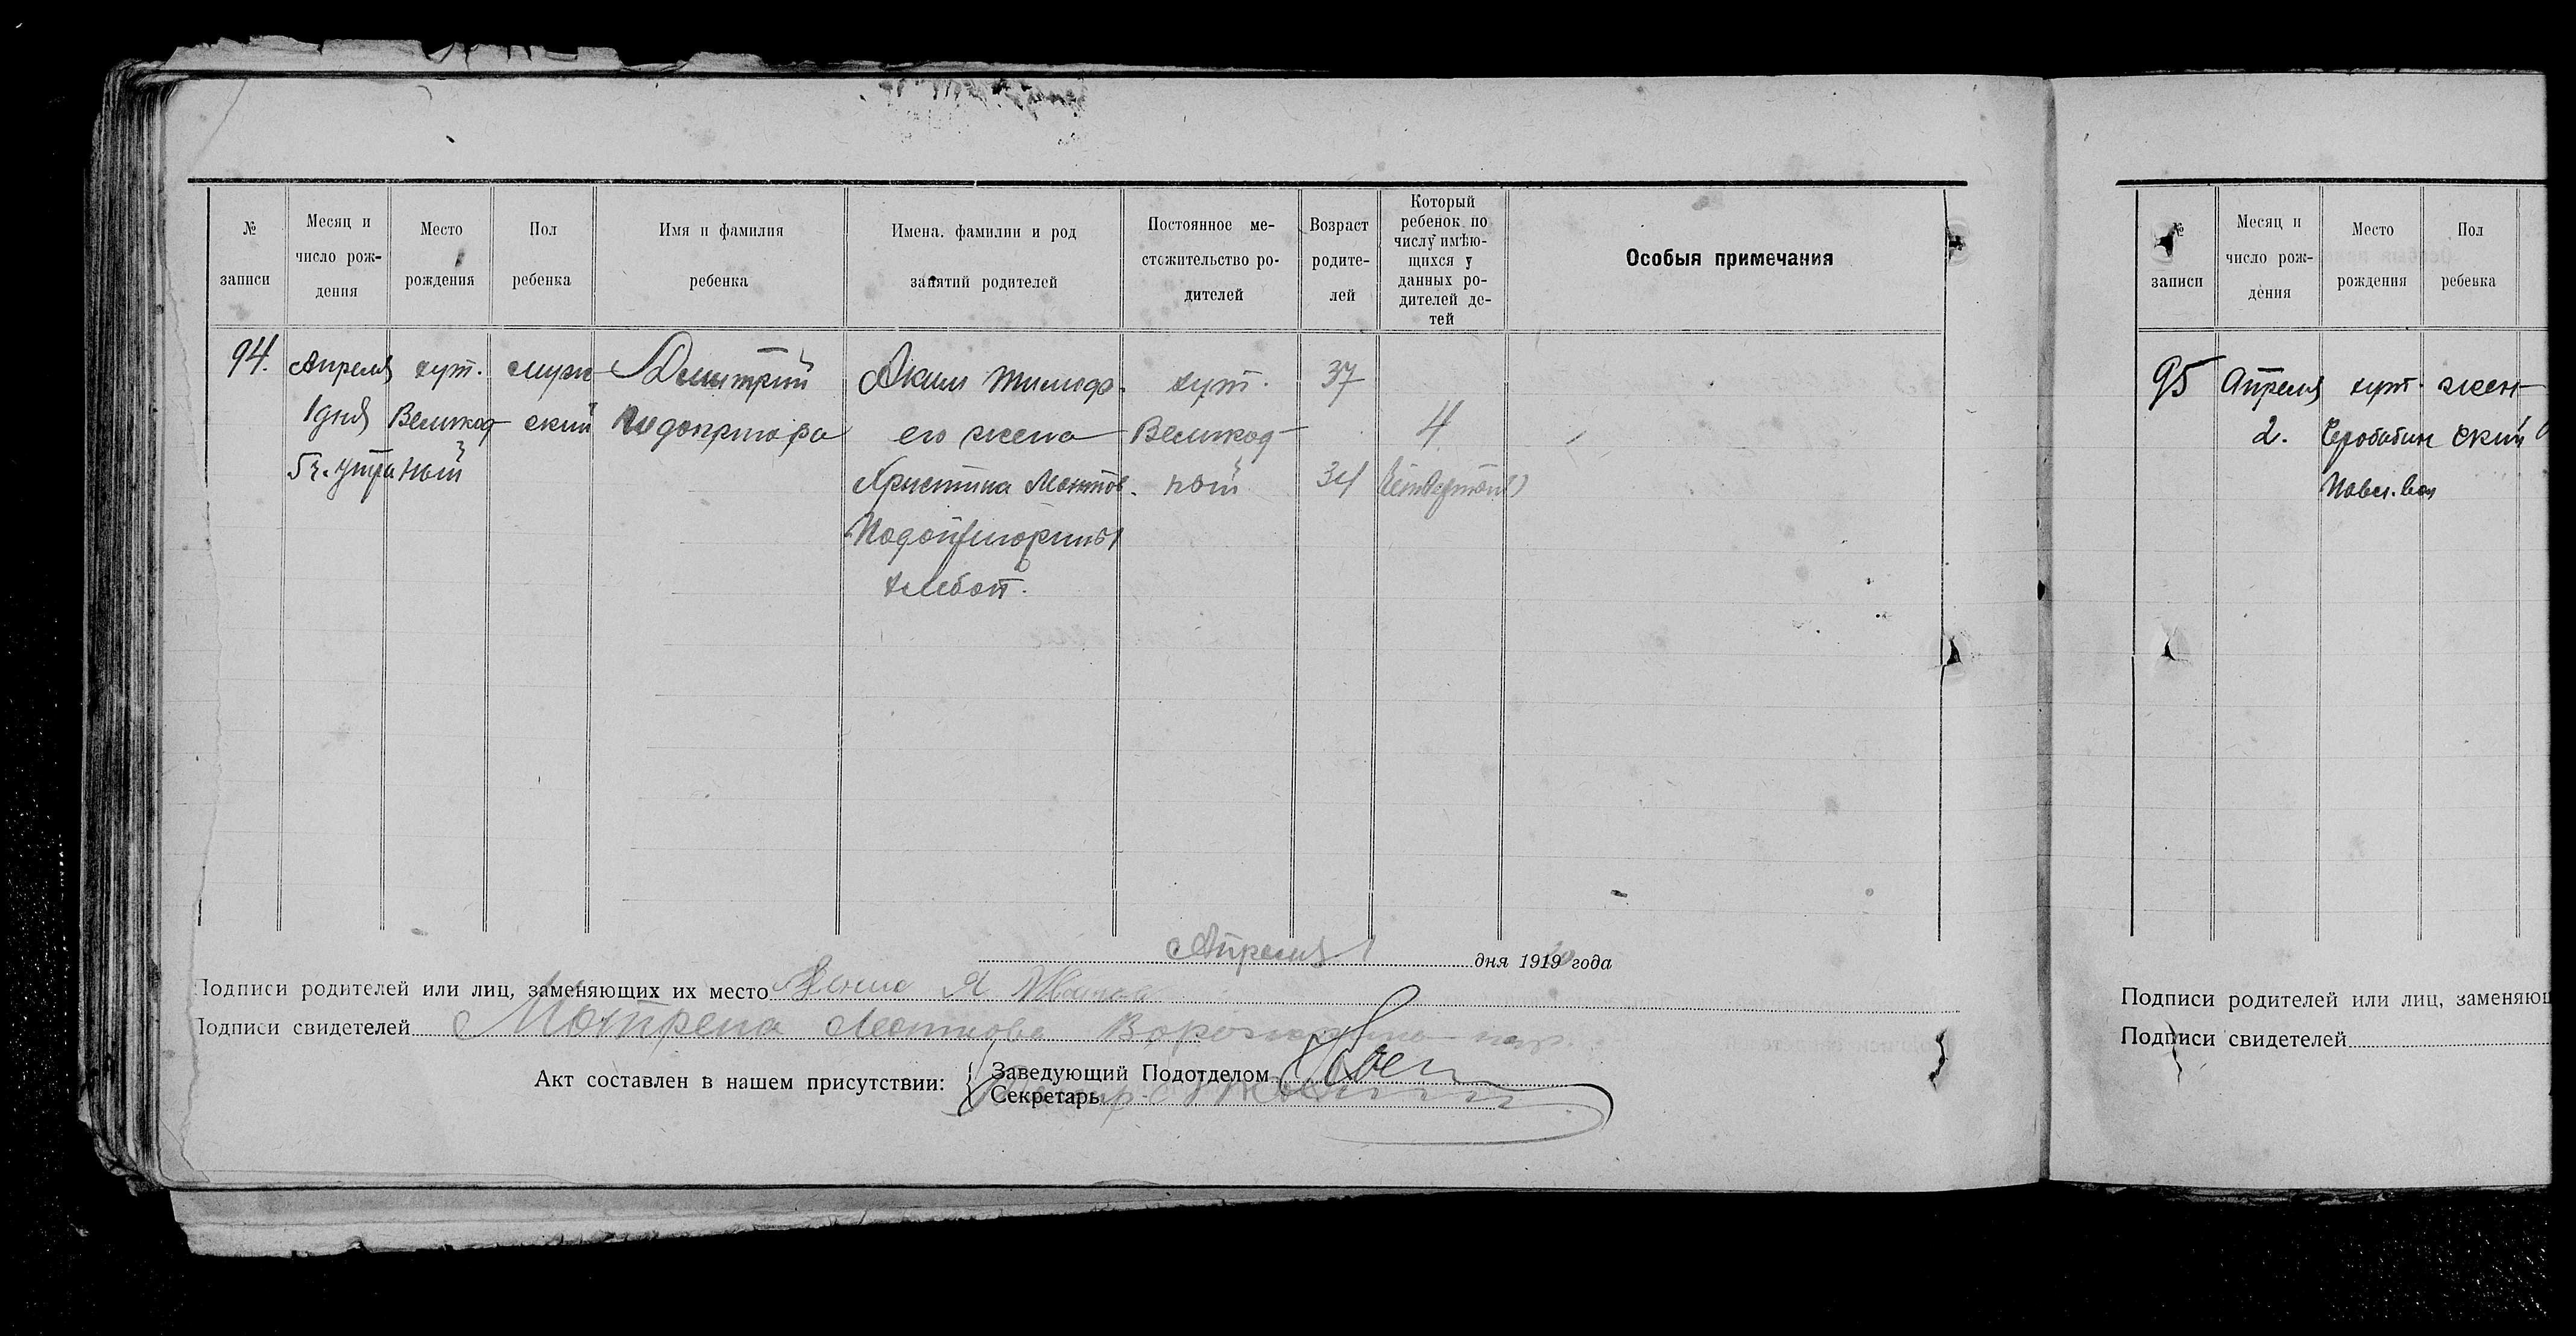 № записи
Месяц и число рождения
Место рождения
Пол ребенка
Имя и фамилия ребенка
Имена, фамилии и род занятий родителей
Постоянное местожительство родителей
Возраст родителей
Который ребенок по числу имѣющихся у данных родителей детей
Особыя примечания
94.
Апреля
1 дня
5 ч. утра
хут.
Великод-
ный
муж-
ский
Дмитрий
Аким Тимоф.
его жена
Христина
хлебоп.
хут.
Великод-
ный
37
34
4
Апреля 1 дня 1919 года
Подписи родителей или лиц, заменяющих их место
Подписи свидетелей Матрена
Акт составлен в нашем присутствии:
Заведующий Подотделом
Секретарь
№ записи
Месяц и число рождения
Место рождения
Пол ребенка
95
Апреля
2.
хут.
жен-
ский
Подписи родителей или лиц, заменяющ
Подписи свидетелей